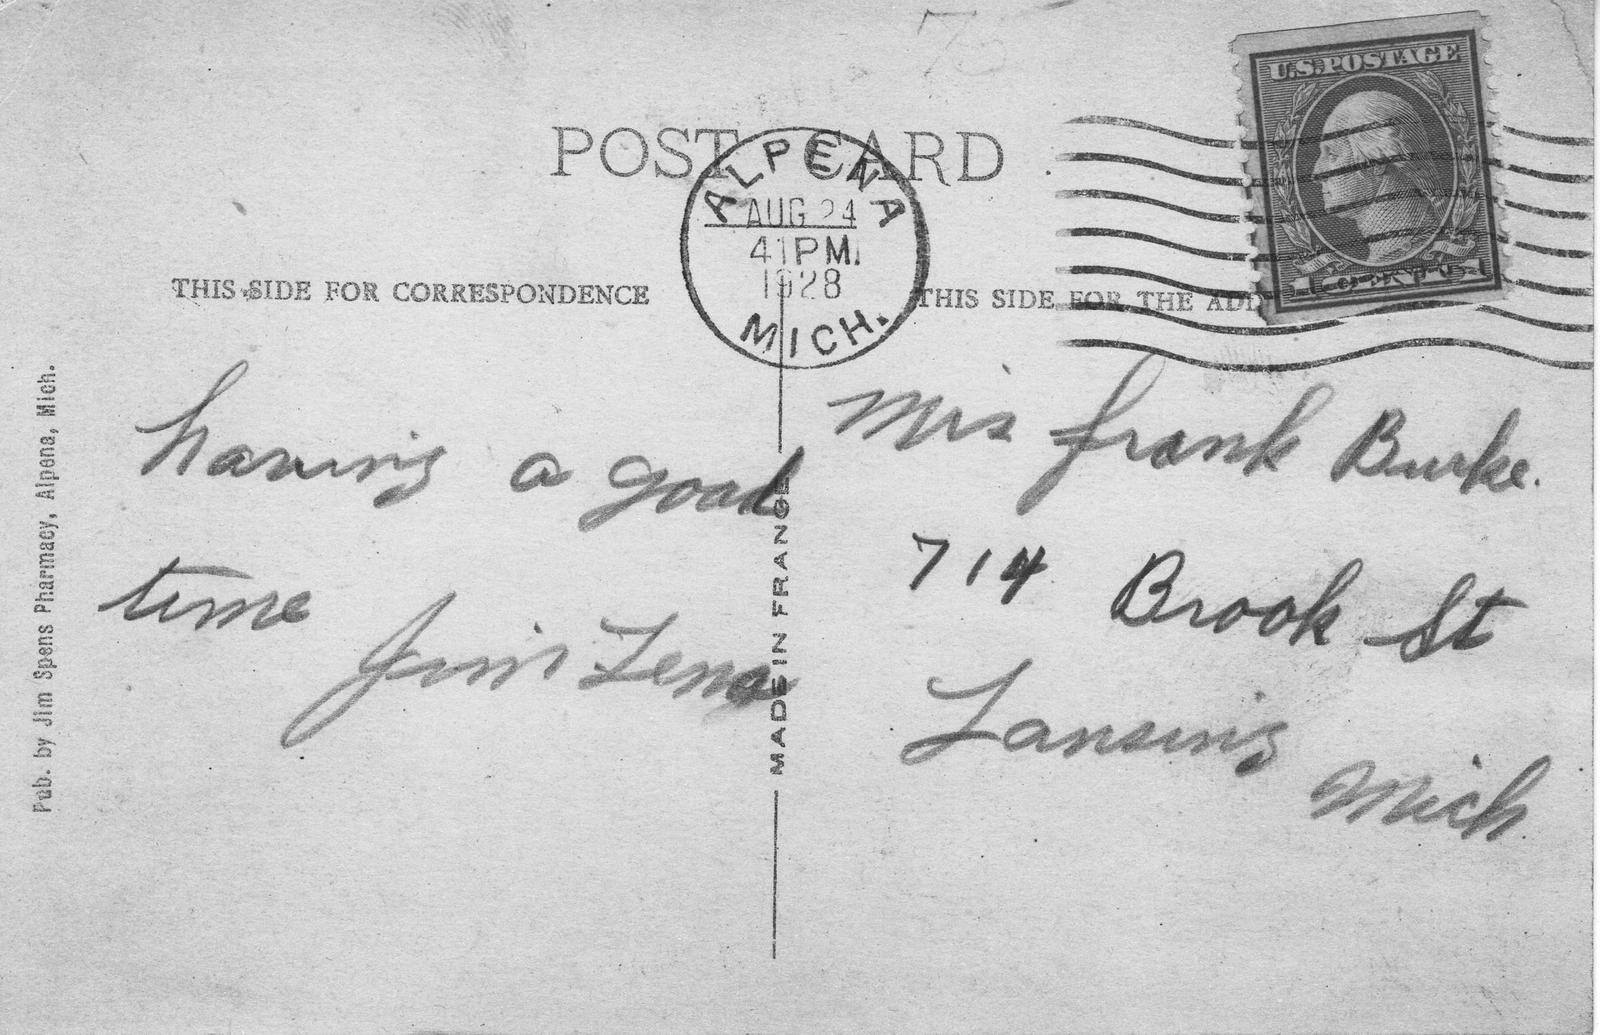 75
U.S.POSTAGE
POST CARD
ALPENA
AUG 24
41PM
1928
MICH.
THIS SIDE FOR CORRESPONDENCE
THIS SIDE FOR THE
having a good
time
Mrs Frank Burke.
714 Brook St
Lansing
Mich
MADE IN FRANCE
Pub. by Jim Spens Pharmacy, Alpena, Mich.